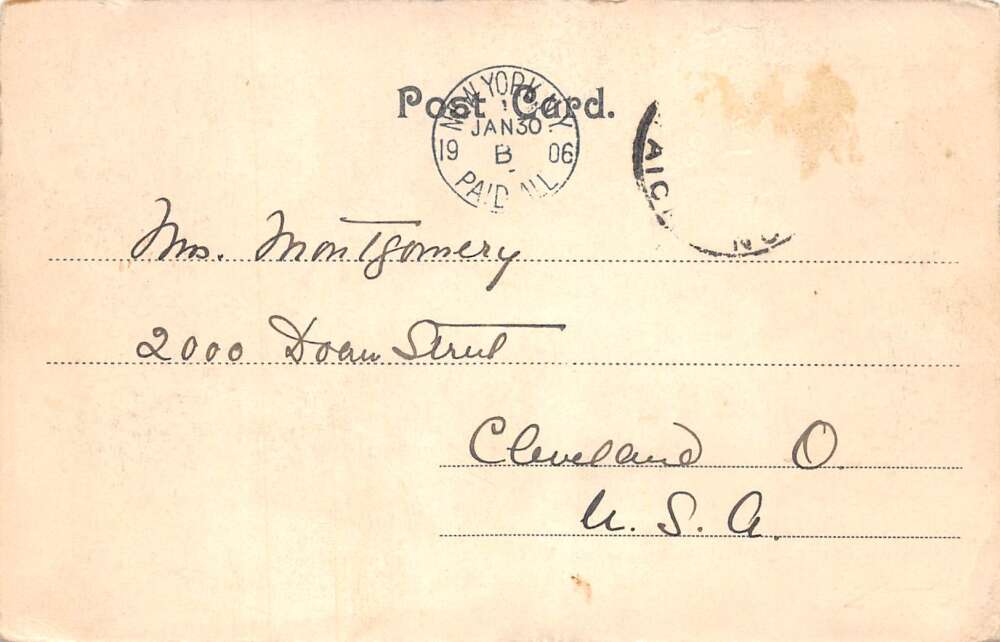 Post Card.
NEW YORK, N.Y.
JAN 30
19 B 06
PAID ALL
Mrs. Montgomery
2000 Doan Street
Cleveland O.
U. S. A.